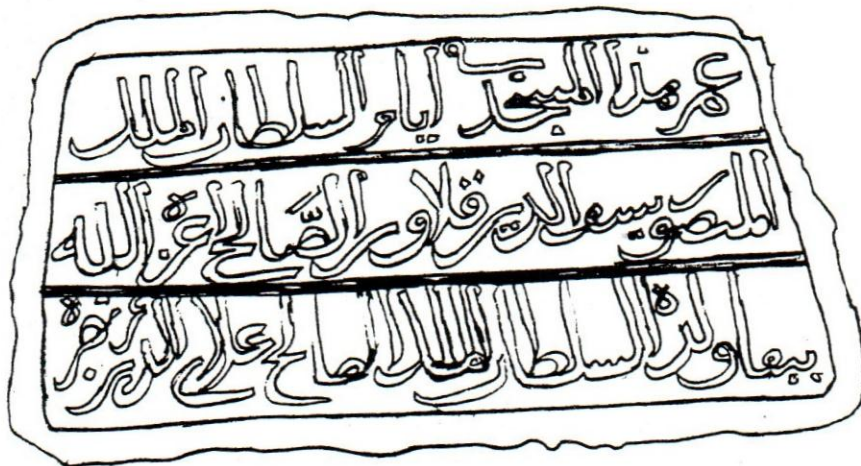 عمر هذا المسجد في ايام السلطان الملك
المنصور سيف الدين قلاور الصالح اعز الله
ببقا ولده السلطان الملك الصالح علا الدين نصره